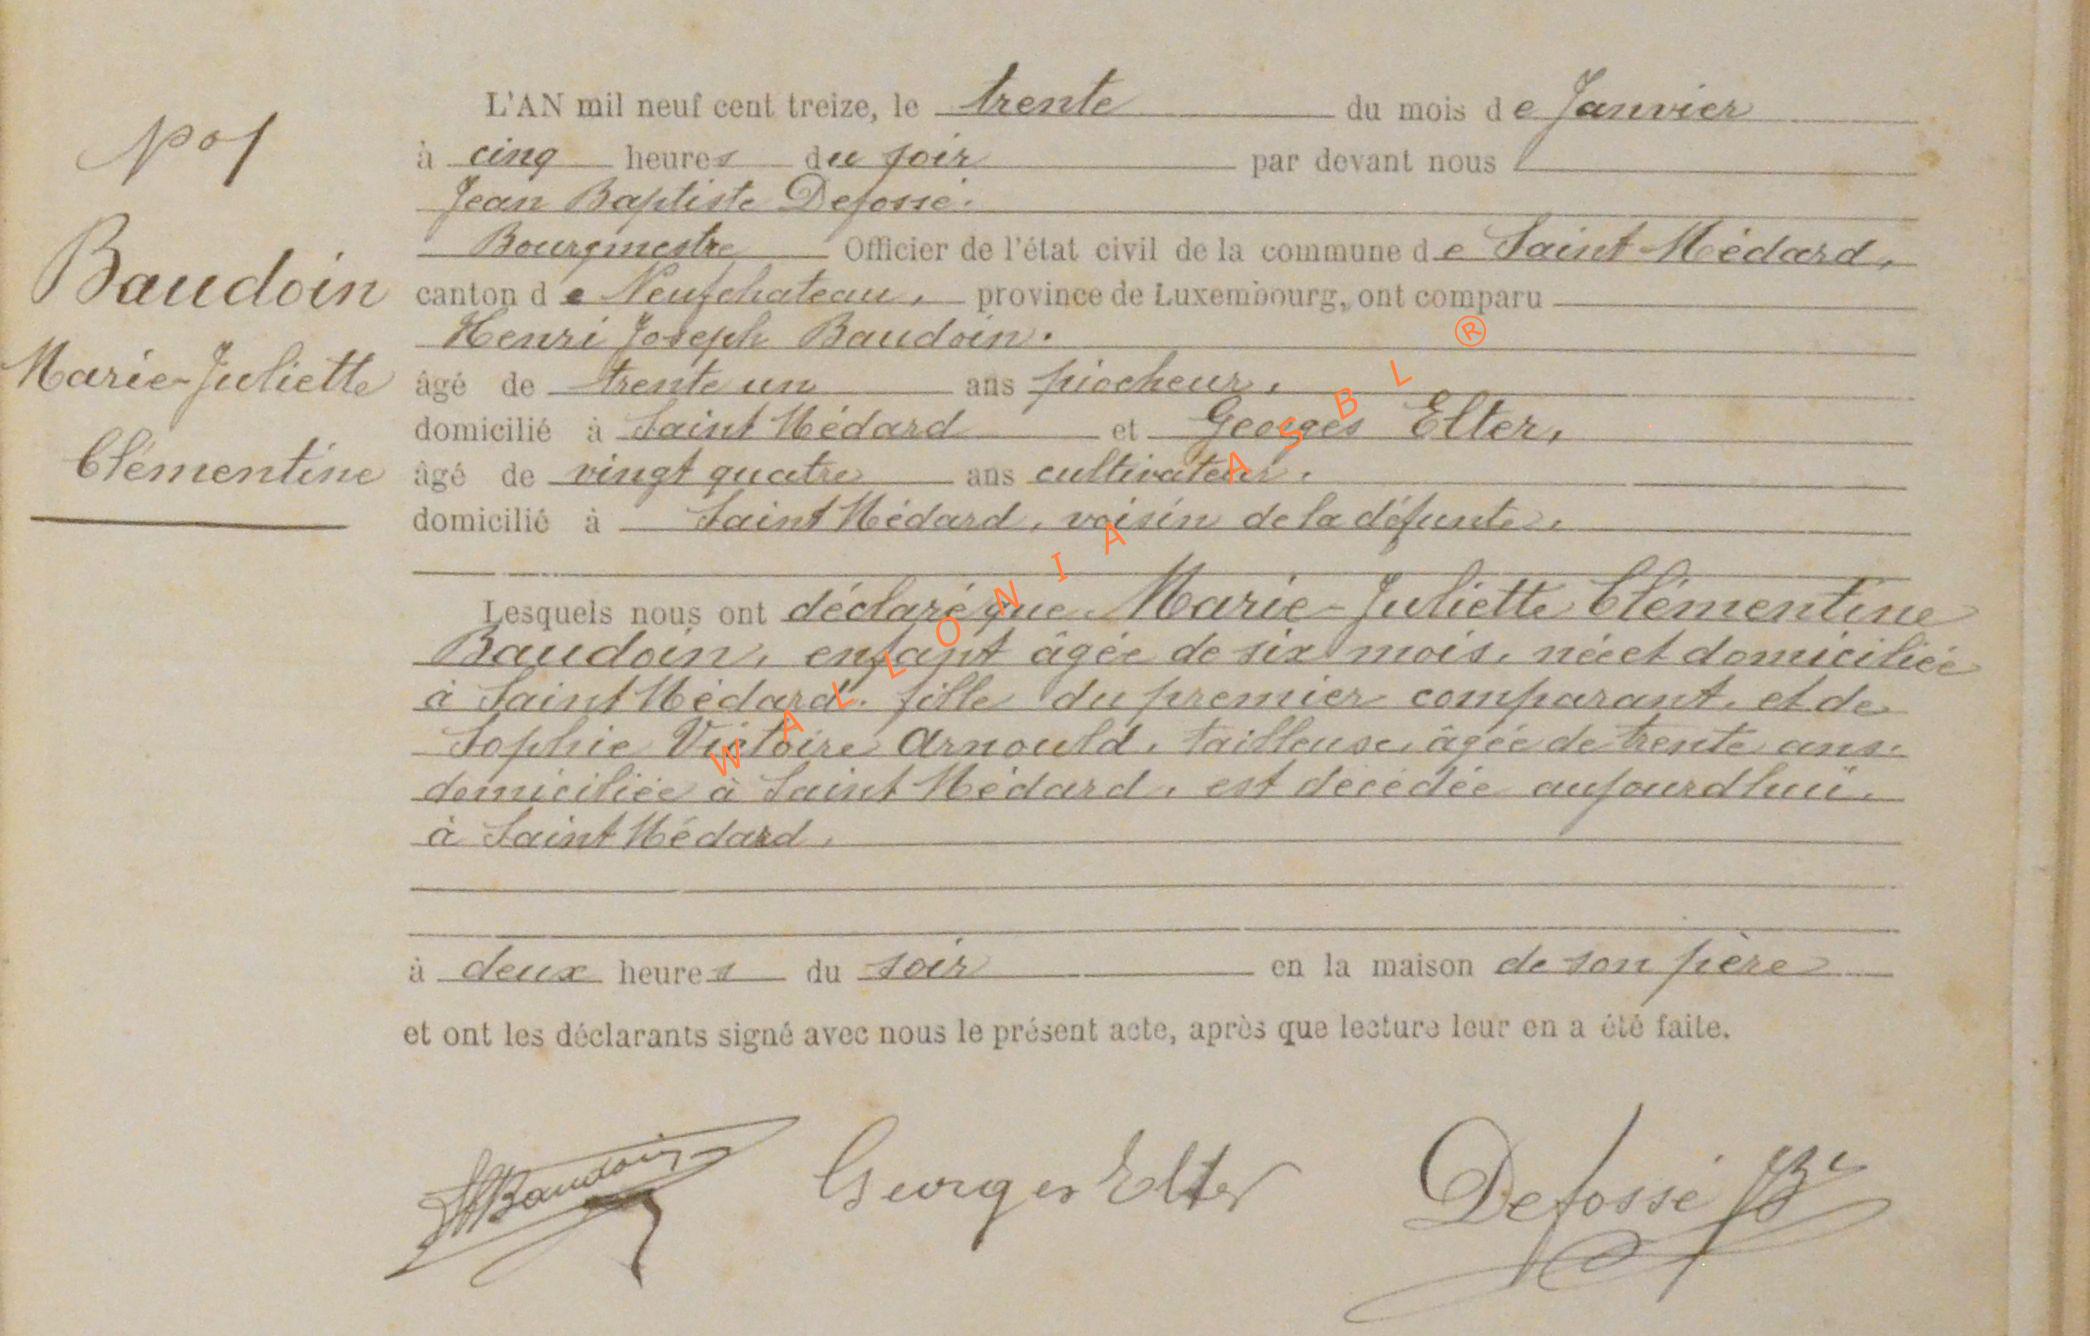 N° 1
Baudoin
Marie-Juliette
Clémentine
L'AN mil neuf cent treize, le trente du mois de Janvier
à cinq heures du soir par devant nous
Jean Baptiste Defossé.
Bourgmestre Officier de l'état civil de la commune de Saint-Médard,
canton de Neufchateau, province de Luxembourg, ont comparu
Henri Joseph Baudoin.
âgé de trente un ans piocheur,
domicilié à Saint Médard et Georges Elter,
âgé de vingt quatre ans cultivateur,
domicilié à Saint Médard, voisin de la défunte,
Lesquels nous ont déclaré que Marie-Juliette Clémentine
Baudoin, enfant âgée de six mois, née et domiciliée
à Saint Médard, fille du premier comparant, et de
Sophie Victoire Arnould, tailleuse, âgée de trente ans,
domiciliée à Saint Médard, est décédée aujourdhui,
à Saint Médard,
à deux heures du soir en la maison de son père
et ont les déclarants signé avec nous le présent acte, après que lecture leur en a été faite.
HBaudoin Georges Elter Defossé JBte
WALLONIA ASBL ®